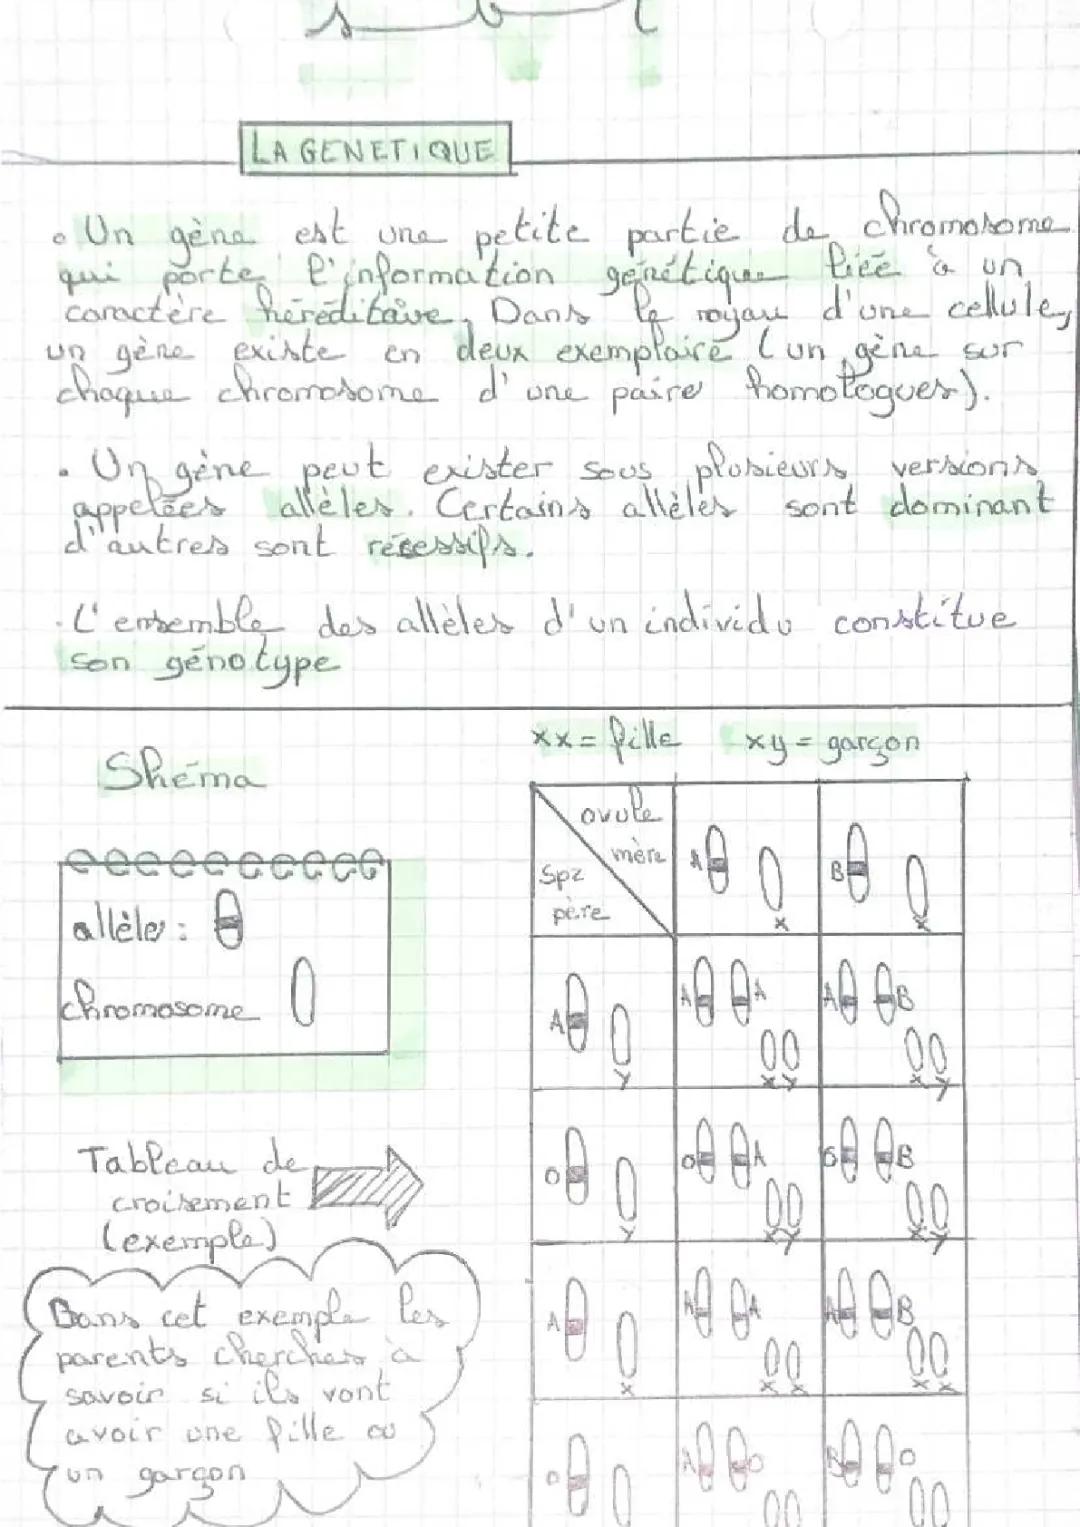 LA GENETIQUE
• Un gène est une petite partie de chromosome
qui porte l'information génétique liée à un
caractère héréditaire. Dans le noyau d'une cellule,
un gène existe en deux exemplaire (un gène sur
chaque chromosome d'une paire homologues).
• Un gène peut exister sous plusieurs versions
appelées allèles. Certains allèles sont dominant
d'autres sont récessifs.
• L'ensemble des allèles d'un individu constitue
son génotype
xx = fille xy = garçon
Shéma
ovule
mère
Spz
père
A x B x
allèle :
chromosome
A y
A A x y
A B x y
Tableau de
croisement
(exemple)
O y
O A x y
O B x y
Dans cet exemple les
parents cherches à
savoir si ils vont
avoir une fille ou
un garçon
A x
A A x x
A B x x
O
A O
B O